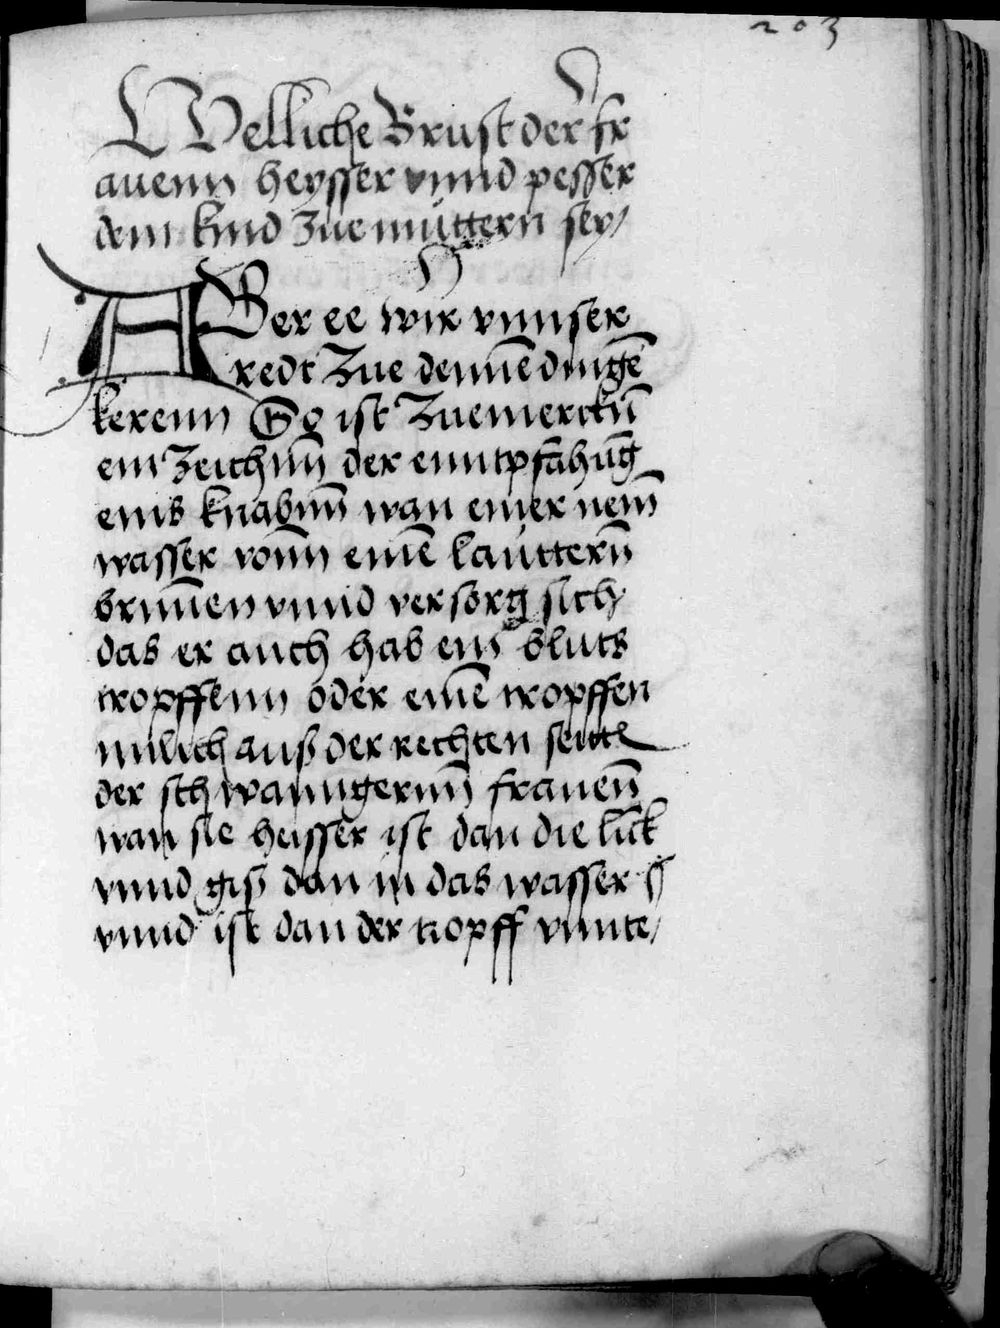 203
Welliche Brust der fr
auenn heysser vnnd pesser
dem kind Zue muttern sey/
ABer ee wir vnnser
redt Zue dennē dingē
kerenn So ist Zuemerckn̄
ein Zeichnn̄ der enntpfāhūg
eins knabnn̄ wan einer nem̄
wasser vonn einē lauttern̄
brun̄en vnnd versorg sich
das er auch hab ein bluts
tropffenn oder einē tropffen
milich auß der rechten seittē
der schwanngernn̄ frauen̄
wan sie heisser ist dan die linck
vnnd giß dan in das wasser
vnnd ist dan der tropff vnnte/